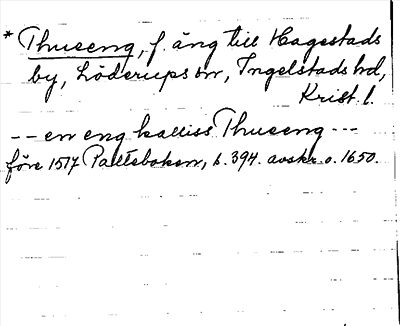 * Thuseng, f. äng till Hagestads
by, Löderups sn, Ingelstads hd,
Krist. l.
-- en eng kalliss Thuseng ---
före 1517 Palteboken, s. 394. avskr. o. 1650.